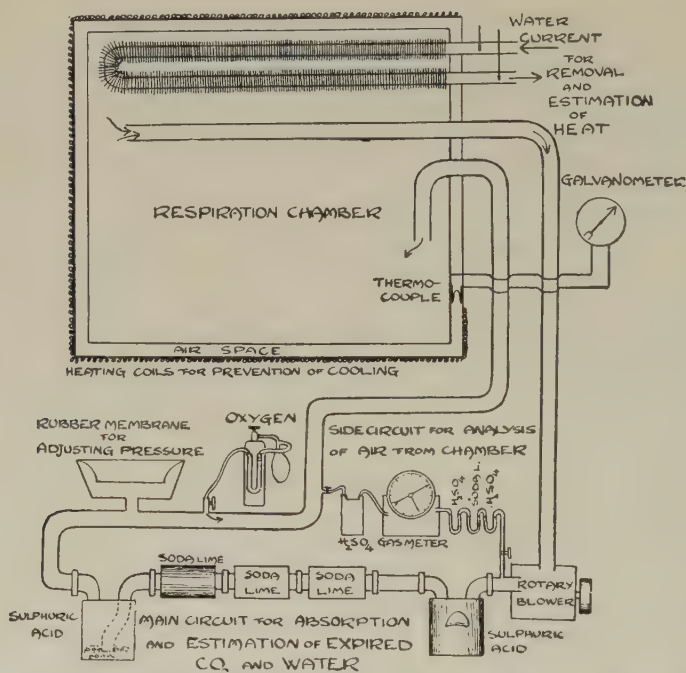 WATER
CURRENT
FOR
REMOVAL
AND
ESTIMATION
OF
HEAT
GALVANOMETER
RESPIRATION CHAMBER
THERMO-
COUPLE
AIR SPACE
HEATING COILS FOR PREVENTION OF COOLING
RUBBER MEMBRANE
FOR
ADJUSTING PRESSURE
OXYGEN
SIDE CIRCUIT FOR ANALYSIS
OF AIR FROM CHAMBER
H₂SO₄
SODA L.
H₂SO₄
H₂SO₄
GAS METER
SODA LIME
SODA
LIME
SODA
LIME
ROTARY
BLOWER
SULPHURIC
ACID
MAIN CIRCUIT FOR ABSORPTION
AND ESTIMATION OF EXPIRED
CO₂ AND WATER
SULPHURIC
ACID